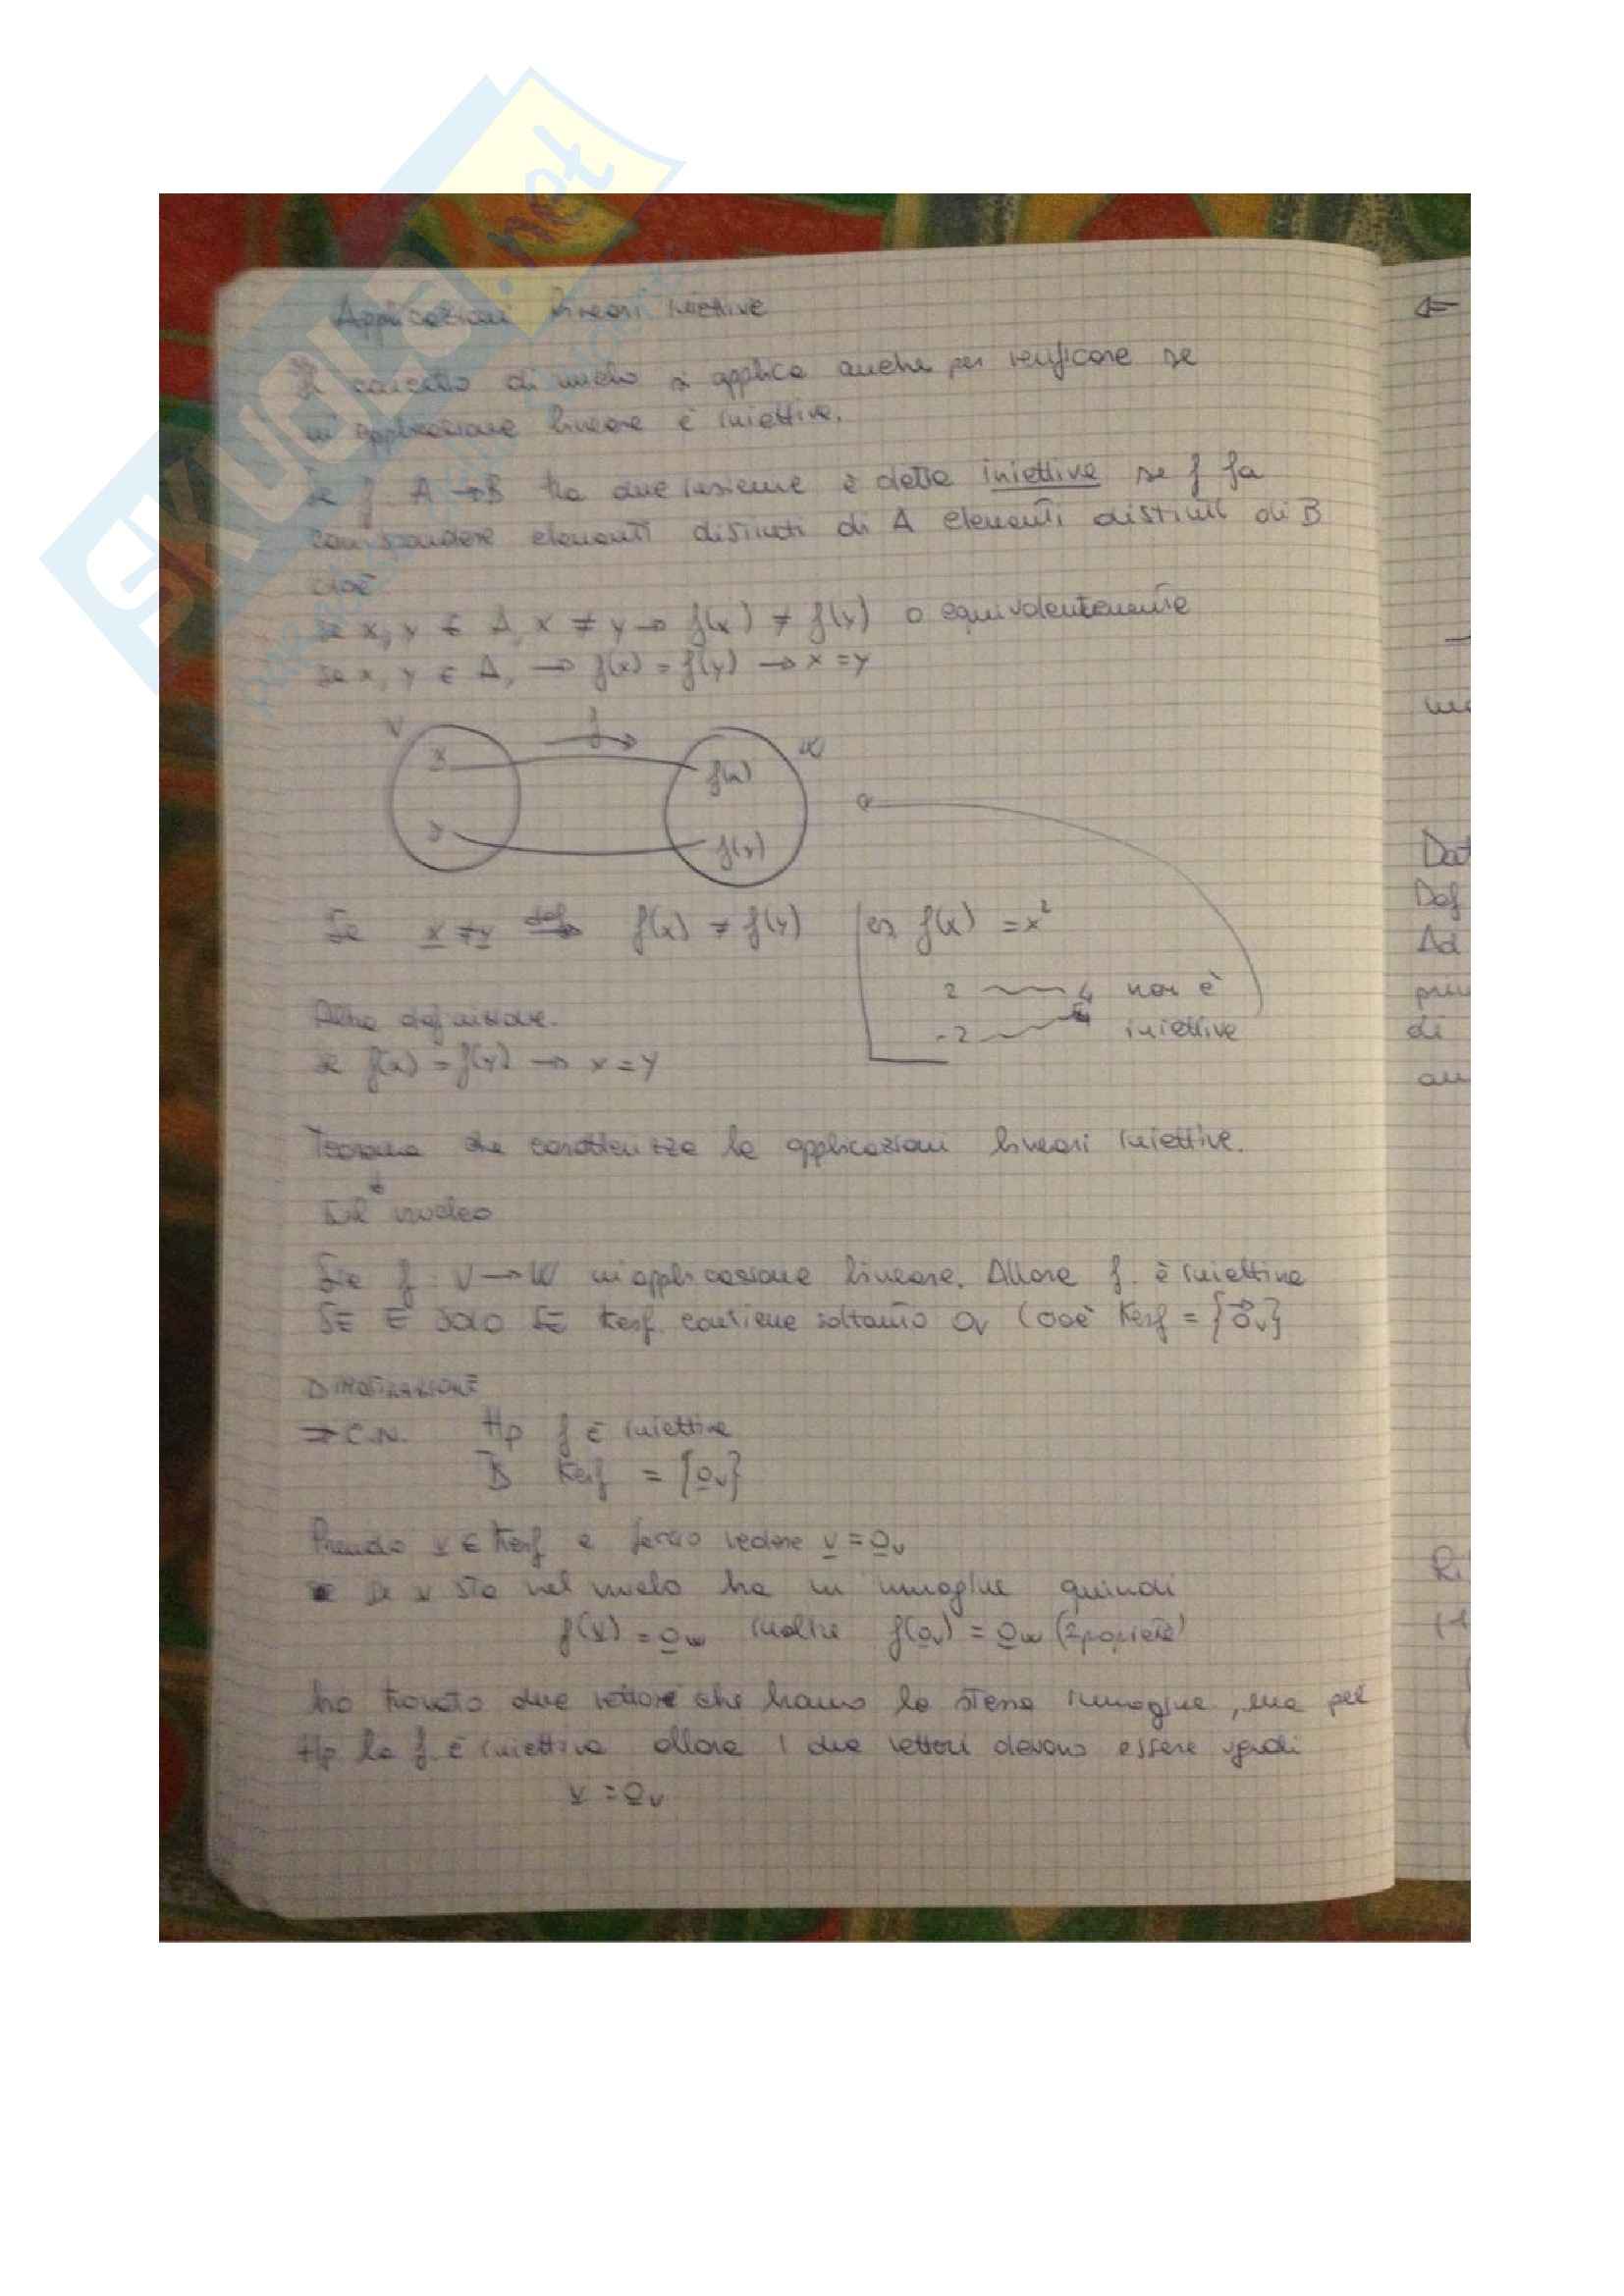 SKUOLA.net
Applicazioni lineari iniettive
Il concetto di nucleo si applica anche per verificare se
un applicazione lineare è iniettiva.
Se f A → B tra due insieme è detta iniettiva se f fa
corrispondere elementi distinti di A elementi distinti di B
cioè
se x, y ∈ A, x ≠ y → f(x) ≠ f(y) o equivalentemente
se x, y ∈ A, → f(x) = f(y) → x = y
V f W
x f(x)
y f(y)
Se x ≠ y def ⇒ f(x) ≠ f(y) es f(x) = x²
2 4 non è
-2 iniettiva
Altra definizione.
se f(x) = f(y) → x = y
Teorema che caratterizza le applicazioni lineari iniettive.
Del nucleo
Sia f V → W un applicazione lineare. Allora f. è iniettiva
SE E SOLO SE Kerf contiene soltanto 0v (cioè Kerf = {0v}
DIMOSTRAZIONE
⇒ C.N. Hp f è iniettiva
Kerf = {0v}
Prendo v ∈ Kerf e faccio vedere v = 0v
se v sta nel nucleo ha un immagine quindi
f(v) = 0w inoltre f(0v) = 0w (2proprietà)
ho trovato due vettore che hanno la stessa immagine, ma per
Hp la f. è iniettiva allora i due vettori devono essere uguali
v = 0v
⇐
Dat
Def
Ad
di
Ri